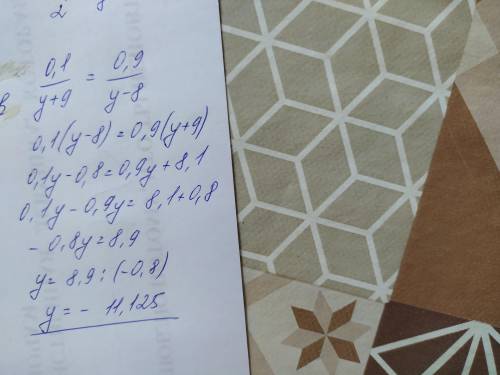 2
в 0,1/y+9 = 0,9/y-8
0,1(y-8)=0,9(y+9)
0,1y-0,8=0,9y+8,1
0,1y-0,9y=8,1+0,8
-0,8y=8,9
y=8,9:(-0,8)
y=- 11,125